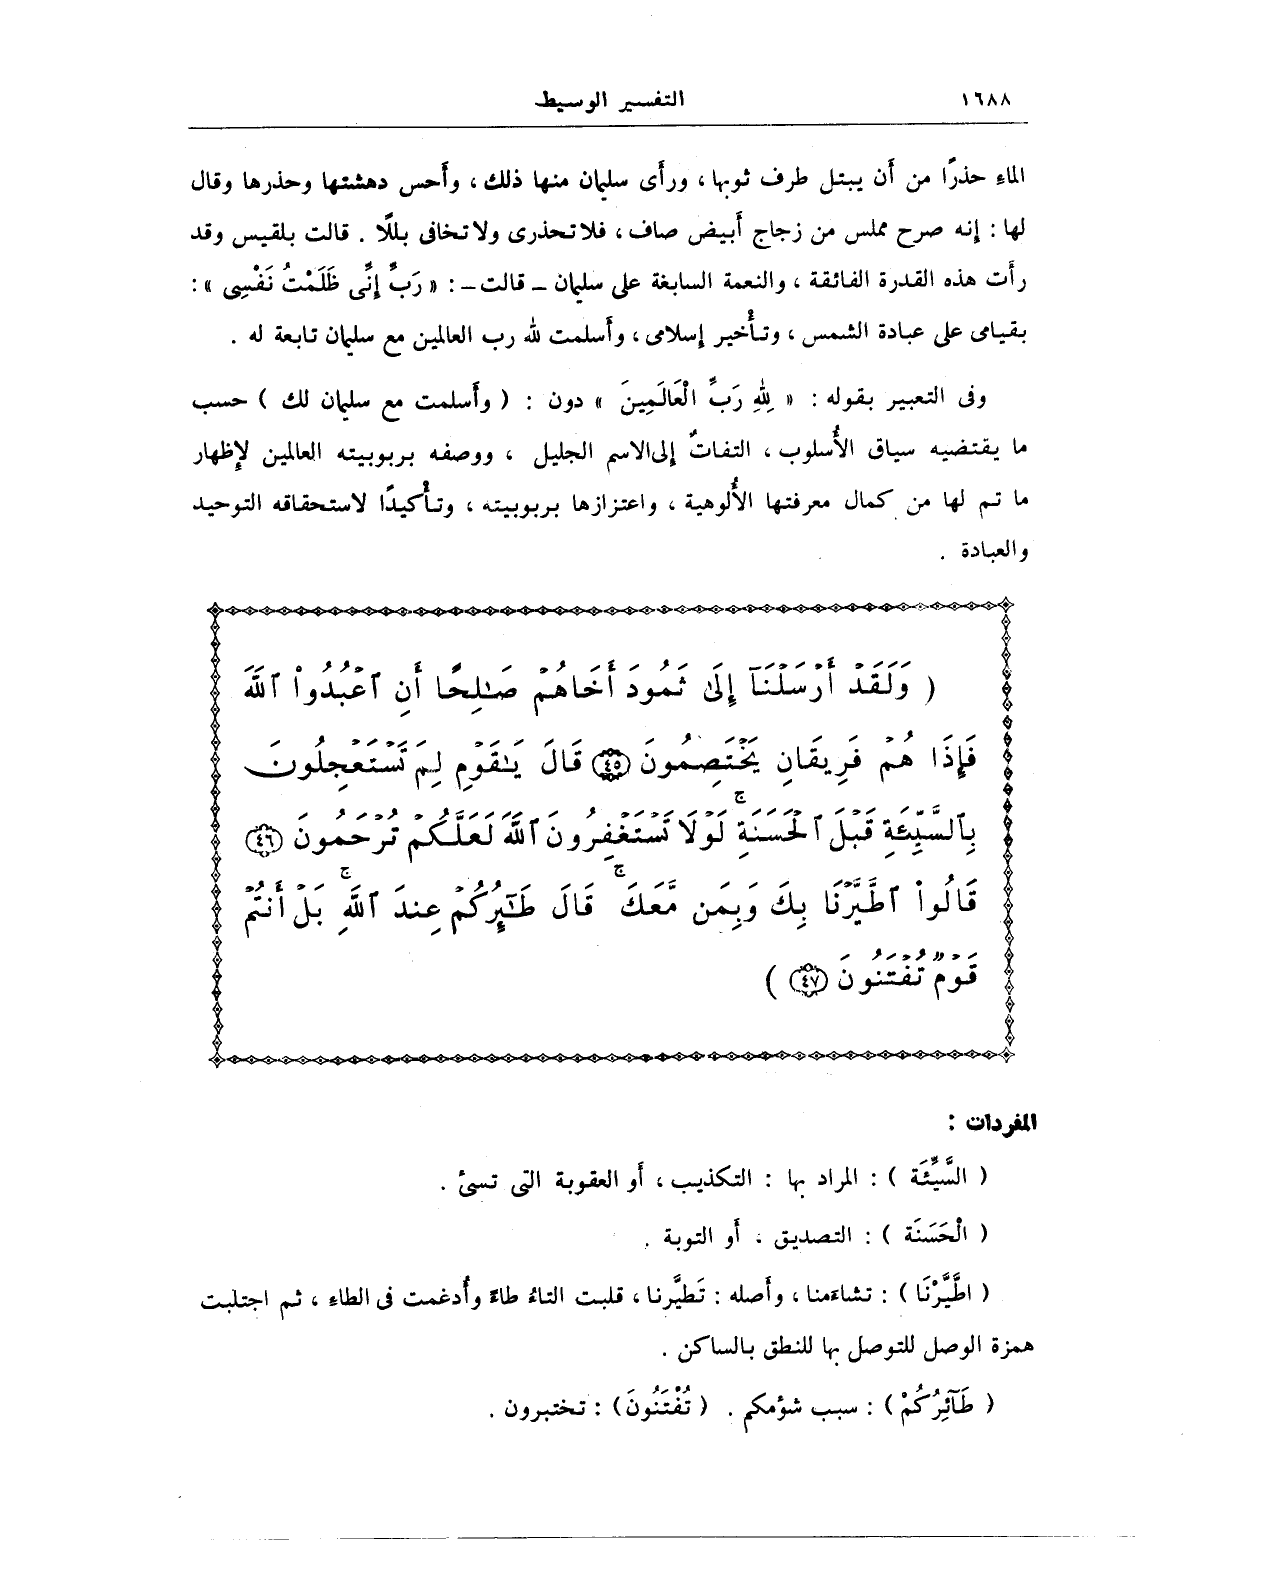 ١٦٨٨ التفسير الوسيط
الماء حذرًا من أن يبتل طرف ثوبها ، ورأى سليمان منها ذلك ، وأحس دهشتها وحذرها وقال
لها : إنه صرح مملس من زجاج أبيض صاف ، فلا تحذرى ولا تخافى بللًا . قالت بلقيس وقد
رأت هذه القدرة الفائقة ، والنعمة السابغة على سليمان ــ قالت ــ : « رَبِّ إِنِّى ظَلَمْتُ نَفْسِى » :
بقيامى على عبادة الشمس ، وتأخير إسلامى ، وأسلمت لله رب العالمين مع سليمان تابعة له .
وفى التعبير بقوله : « لِلّٰهِ رَبِّ الْعَالَمِينَ » دون : ( وأسلمت مع سليمان لك ) حسب
ما يقتضيه سياق الأُسلوب ، التفاتٌ إلى الاسم الجليل ، ووصفه بربوبيته العالمين لإظهار
ما تم لها من كمال معرفتها الأُلوهية ، واعتزازها بربوبيته ، وتأكيدًا لاستحقاقه التوحيد
والعبادة .
( وَلَقَدْ أَرْسَلْنَآ إِلَىٰ ثَمُودَ أَخَاهُمْ صَـٰلِحًا أَنِ ٱعْبُدُوا۟ ٱللَّهَ
فَإِذَا هُمْ فَرِيقَانِ يَخْتَصِمُونَ ﴿٤٥﴾ قَالَ يَـٰقَوْمِ لِمَ تَسْتَعْجِلُونَ
بِٱلسَّيِّئَةِ قَبْلَ ٱلْحَسَنَةِ ۚ لَوْلَا تَسْتَغْفِرُونَ ٱللَّهَ لَعَلَّكُمْ تُرْحَمُونَ ﴿٤٦﴾
قَالُوا۟ ٱطَّيَّرْنَا بِكَ وَبِمَن مَّعَكَ ۚ قَالَ طَـٰٓئِرُكُمْ عِندَ ٱللَّهِ ۚ بَلْ أَنتُمْ
قَوْمٌ تُفْتَنُونَ ﴿٤٧﴾ )
المفردات :
( السَّيِّئَة ) : المراد بها : التكذيب ، أو العقوبة التى تسئ .
( الْحَسَنَة ) : التصديق ، أو التوبة .
( اطَّيَّرْنَا ) : تشاءمنا ، وأصله : تَطيَّرنا ، قلبت التاءُ طاءً وأُدغمت فى الطاء ، ثم اجتلبت
همزة الوصل للتوصل بها للنطق بالساكن .
( طَآئِرُكُمْ ) : سبب شؤمكم . ( تُفْتَنُونَ ) : تختبرون .